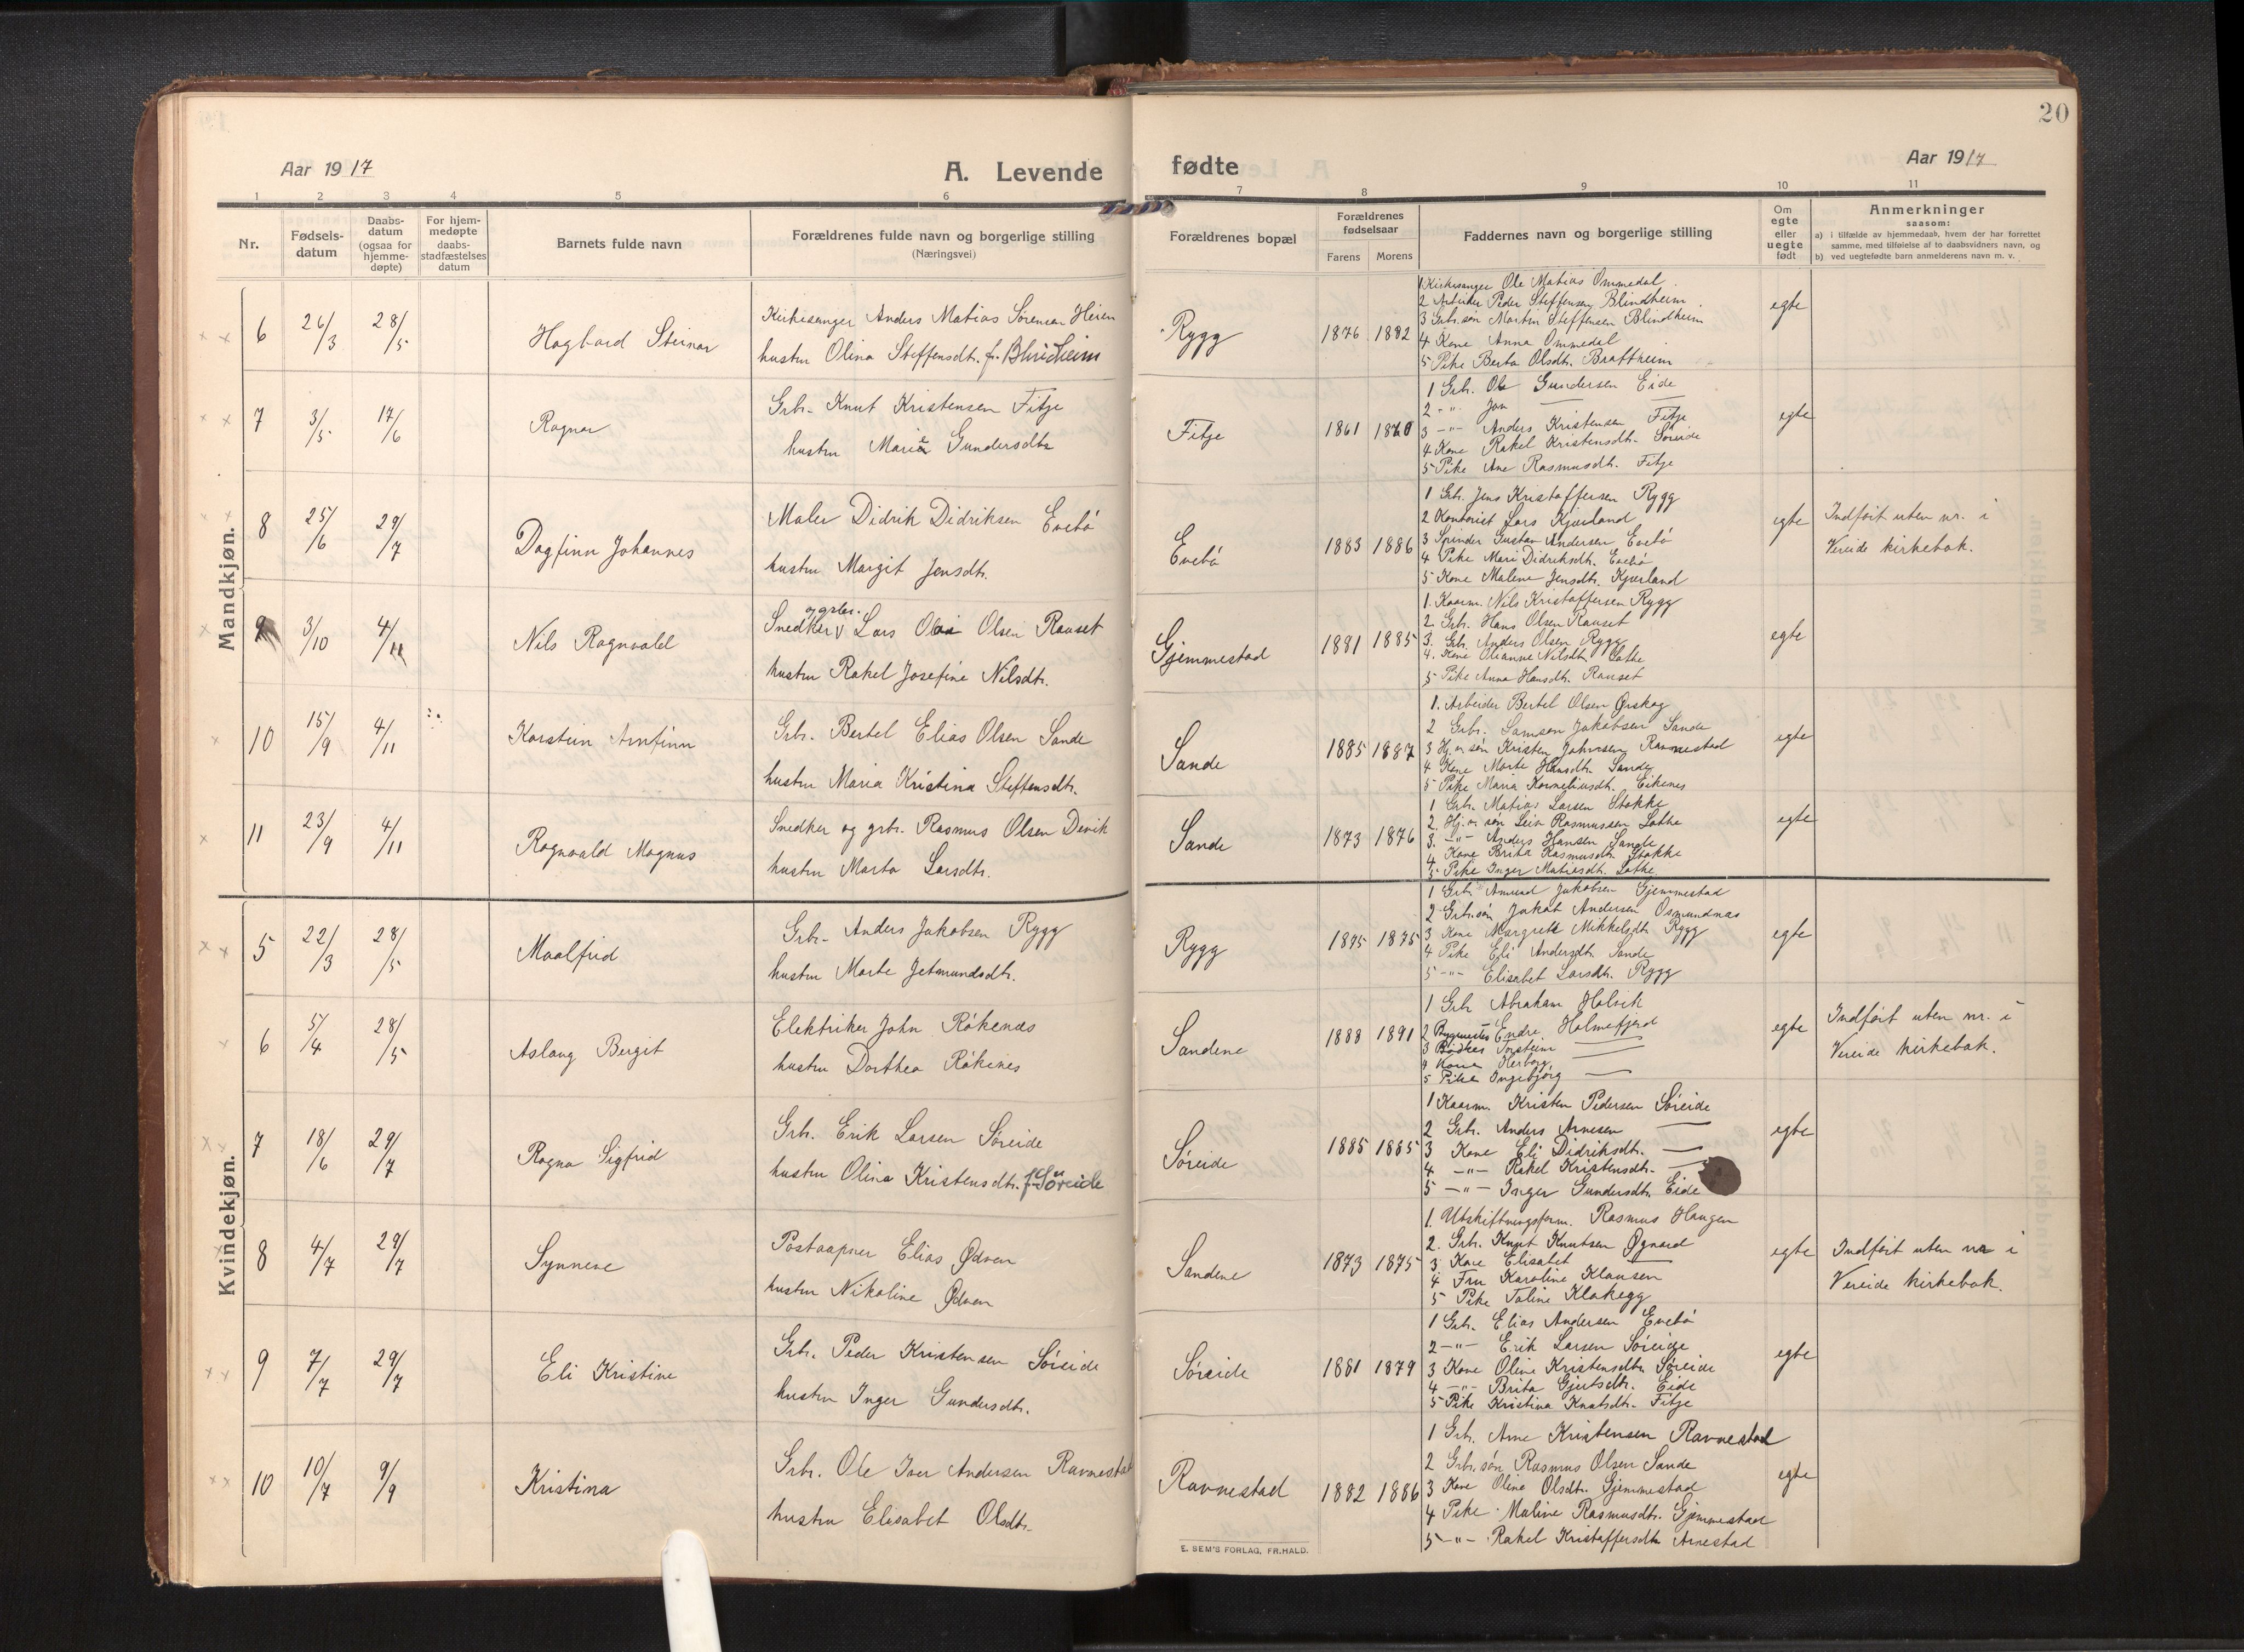 20
Aar 1917
A. Levende
fødte
Aar 1917
1 2 3 4 5 6 7 8 9 10 11
Nr.
Fødsels-
datum
Daabs-
datum
(ogsaa for
hjemme-
døpte)
For hjem-
medøpte
daabs-
stadfæstelses
datum
Barnets fulde navn
Forældrenes fulde navn og borgerlige stilling
(Næringsvei)
Forældrenes bopæl
Forældrenes
fødselsaar
Farens Morens
Faddernes navn og borgerlige stilling
Om
egte
eller
uegte
født
Anmerkninger
saasom:
a) i tilfælde av hjemmedaab, hvem der har forrettet
samme, med tilføielse af to daabsvidners navn, og
b) ved uegtefødte barn anmelderens navn m. v.
Mandkjøn.
6 26/3 28/5 Hagbard Steinar
Kirkesanger Anders Matias Sørensen Heien
hustru Olina Steffensdtr. f. Blindheim
Rygg 1876 1882
1 Kirkesanger Ole Matias Ommedal
2 Arbeider Peder Steffensen Blindheim
3 Grb.søn Martin Steffensen Blindheim
4 Kone Anna Ommedal
5 Pike Berta Olsdtr. Brattheim
egte
7 3/5 17/6 Ragnar
Grbr. Knut Kristensen Fitje
hustru Marie Gundersdtr
Fitje 1861 1870
1 Grb. Ole Gundersen Eide
2 -"- Jon —
3 -"- Anders Kristensen Fitje
4 Kone Rakel Kristensdtr. Søreide
5 Pike Ane Rasmusdtr. Fitje
egte
8 25/6 29/7 Dagfinn Johannes
Maler Didrik Didriksen Evebø
hustru Margit Jensdtr.
Evebø 1883 1886
1 Grb. Jens Kristoffersen Rygg
2 Kontorist Lars Kjærland
3 Spinder Gustav Andersen Evebø
4 Pike Mari Didriksdtr. Evebø
5 Kone Malene Jensdtr. Kjærland
egte
Indført uten nr. i
Vereide kirkebok.
9 3/10 4/11 Nils Ragnvald
og grbr.
Snedker Lars Olai Olsen Rauset
hustru Rakel Josefine Nilsdtr.
Gjemmestad 1881 1885
1. Kaarm. Nils Kristoffersen Rygg
2 Grb. Hans Olsen Rauset
3. Grb. Anders Olsen Rygg
4. Kone Olianne Nilsdtr. Lothe
5 Pike Anna Hansdtr. Rauset
egte
10 15/9 4/11 Karstein Arnfinn
Grb. Bertel Elias Olsen Sande
hustru Maria Kristina Steffensdtr.
Sande 1885 1887
1. Arbeider Bertel Olsen Ørskog
2 Grb. Samson Jakobsen Sande
3 Hj.v. søn Kristen Johnsen Ravnestad
4 Kone Marte Hansdtr. Sande
5 Pike Maria Korneliusdtr. Eikenes
egte
11 23/9 4/11 Ragnvald Magnus
Snedker og grbr. Rasmus Olsen Devik
hustru Marta Larsdtr.
Sande 1873 1876
1 Grb. Matias Larsen Stokke
2. Hj.v. søn Leiv Rasmussen Lothe
3. -"- Anders Hansen Sande
4. Kone Brita Rasmusdtr. Stokke
5 Pike Inger Matiasdtr. Lothe
egte
Kvindekjøn.
5 22/3 28/5 Maalfrid
Grbr. Anders Jakobsen Rygg
hustru Marte Jetmundsdtr.
Rygg 1875 1875
1 Grb. Amund Jakobsen Gjemmestad
2 Grb.søn Jakob Andersen Osmundnæs
3 Kone Margrete Mikkelsdtr. Rygg
4 Pike Eli Andersdtr. Sande
5 -"- Elisabet Larsdtr. Rygg
egte
6 5/4 28/5 Aslaug Bergit
Elektriker John Røkenæs
hustru Dorthea Røkenes
Sandene 1888 1891
1 Grb Abraham Holvik
2 Bygmester Endre Holmefjord
3 Bødker Torstein —
4 Kone Herborg —
5 Pike Ingebjørg —
egte
Indført uten nr. i
Vereide kirkebok.
7 18/6 29/7 Ragna Sigfrid
Grb. Erik Larsen Søreide
hustru Olina Kristensdtr. f. Søreide
Søreide 1885 1885
1 Kaarm. Kristen Pedersen Søreide
2 Grb. Anders Arnesen —
3 Kone Eli Didriksdtr. —
4 -"- Rakel Kristensdtr. —
5 -"- Inger Gundersdtr. Eide
egte
8 4/7 29/7 Synneve
Postaapner Elias Ødven
hustru Nikoline Ødven
Sandene 1873 1875
1. Utskiftningsform. Rasmus Haugen
2. Grb. Knut Knutsen Øgaard
3. Kone Elisabet —
4 Fru Karoline Klausen
5 Pike Taline Klakegg
egte
Indført uten nr i
Vereide kirkebok.
9 7/7 29/7 Eli Kristine
Grb. Peder Kristensen Søreide
hustru Inger Gundersdtr.
Søreide 1881 1879
1 Grb. Elias Andersen Evebø
2 -"- Erik Larsen Søreide
3 Kone Oline Kristensdtr. Søreide
4 -"- Brita Gjertsdtr. Eide
5 Pike Kristina Knutsdtr. Fitje
egte
10 10/7 9/9 Kristina
Grb. Ole Iver Andersen Ravnestad
hustru Elisabet Olsdtr.
Ravnestad 1882 1886
1 Grb. Arne Kristensen Ravnestad
2 Grb.søn Rasmus Olsen Sande
3 Kone Oline Olsdtr. Gjemmestad
4 Pike Maline Rasmusdtr. Gjemmestad
5 -"- Rakel Kristoffersdtr Arnestad
egte
E. SEM'S FORLAG, FR.HALD.